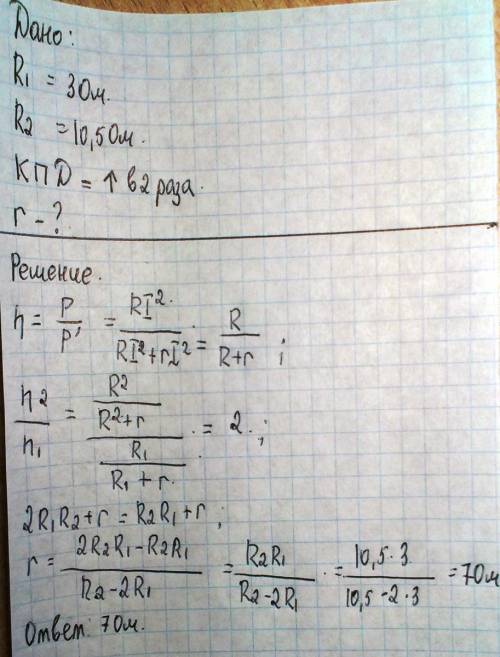 Дано:
R1 = 3Ом.
R2 = 10,5Ом.
КПД = ↑ в 2 раза.
r - ?
Решение.
η = P / P' = RI² / RI² + rI² = R / R + r ;
η2 / η1 = (R2 / R2 + r) / (R1 / R1 + r) = 2. ;
2R1R2 + r = R2R1 + r ;
r = 2R2R1 - R2R1 / R2 - 2R1 = R2R1 / R2 - 2R1 = 10,5·3 / 10,5 - 2·3 = 7Ом
Ответ: 7Ом.